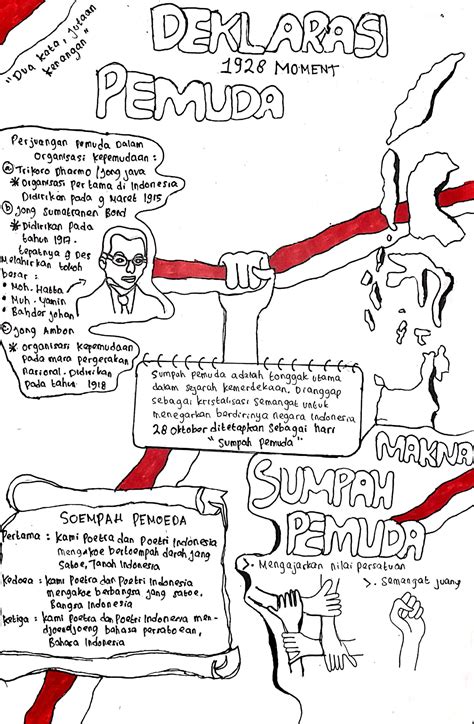 "Dua kata, jutaan
kenangan"
DEKLARASI
PEMUDA
1928 MOMENT
Perjuangan pemuda dalam
organisasi kepemudaan :
a) Trikoro dharmo / Jong java
* organisasi pertama di Indonesia
Didirikan pada 9 Maret 1915
b) Jong Sumatranen Bond
* Didirikan pada
tahun 1917.
tepatnya 9 Des
Melahirkan tokoh
besar :
• Moh. Hatta
• Muh. Yamin
• Bahdor Johan
c) Jong Ambon
* organisasi kepemudaan
pada masa pergerakan
nasional. Didirikan
pada tahun 1918
Sumpah pemuda adalah tonggak utama
dalam sejarah kemerdekaan. Dianggap
sebagai kristalisasi semangat untuk
menegarkan berdirinya negara Indonesia
28 Oktober ditetapkan sebagai hari
"Sumpah pemuda"
MAKNA
SUMPAH
PEMUDA
>. Mengajarkan nilai persatuan
>. Semangat juang
SOEMPAH PEMOEDA
Pertama : kami Poetra dan Poetri Indonesia
mengakoe bertoempah darah jang
satoe, Tanah Indonesia
Kedoea : kami Poetra dan Poetri Indonesia
mengakoe berbangsa jang satoe,
Bangsa Indonesia
Ketiga : kami Poetra dan Poetri Indonesia men-
djoendjoeng bahasa persatoean,
Bahasa Indonesia